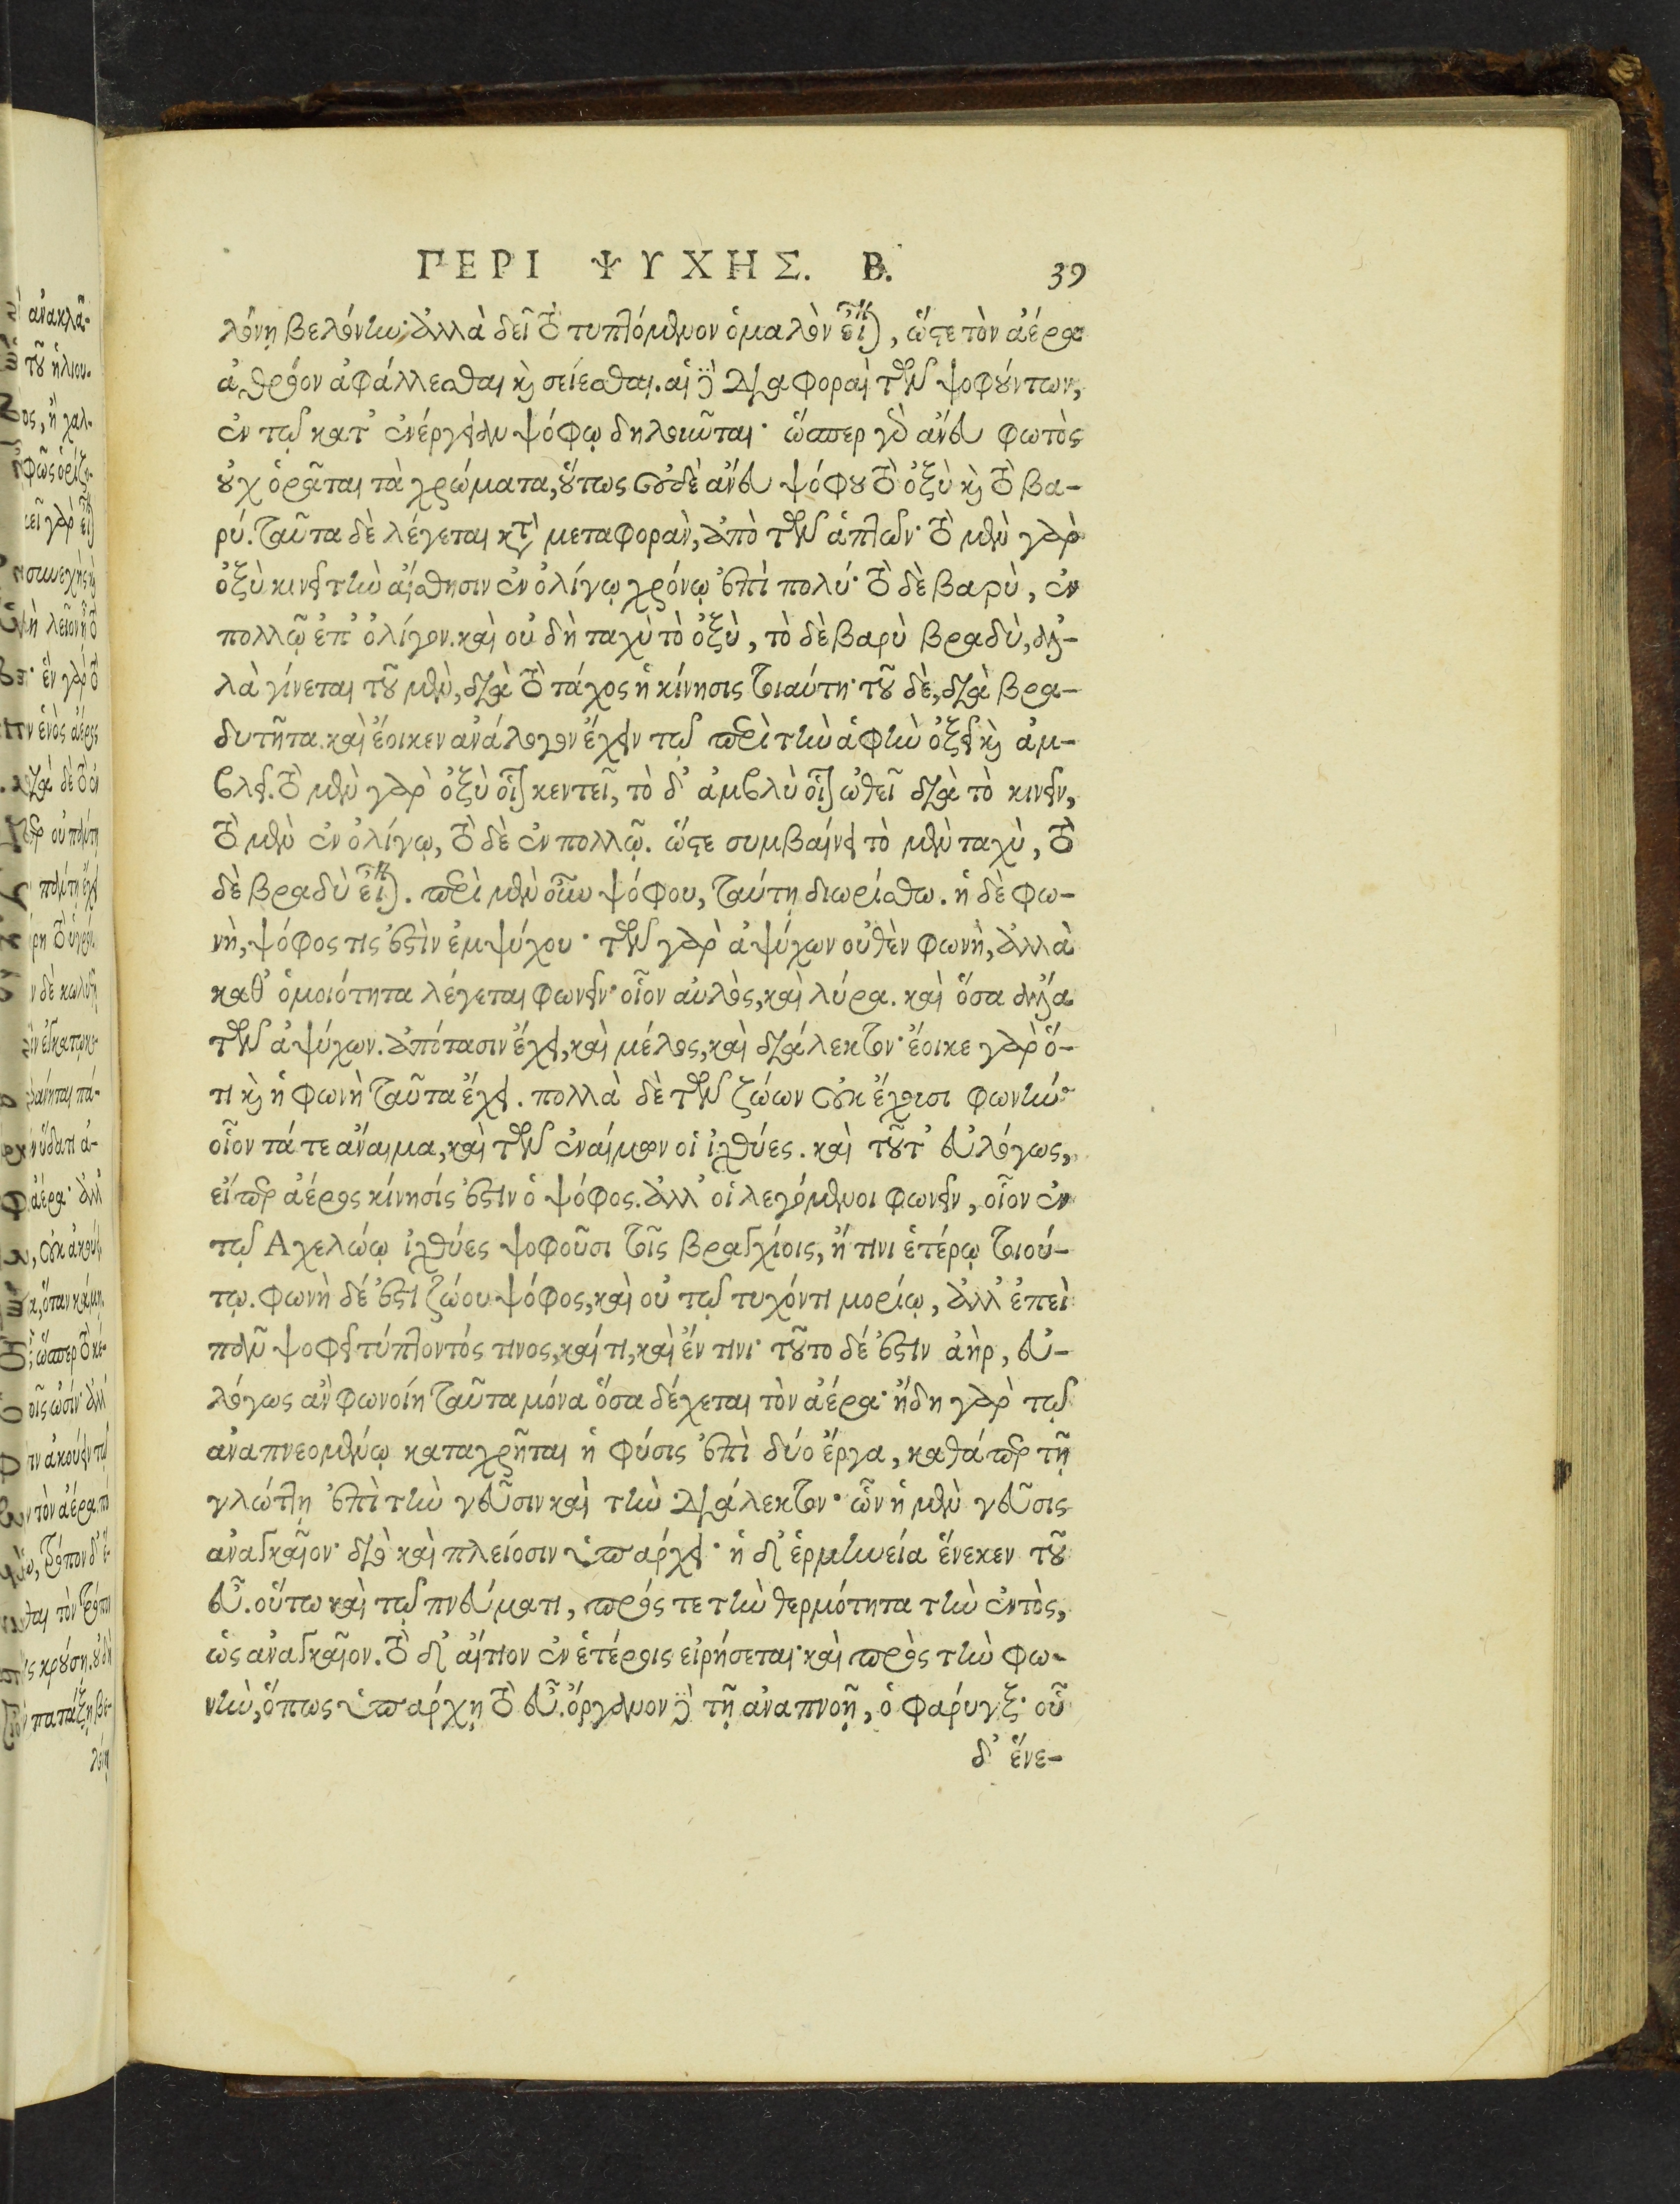 ΠΕΡΙ ΨΥΧΗΣ. Β. 39
λόνῃ βελόνην· ἀλλὰ δεῖ τὸ τυπτόμενον ὁμαλὸν εἶναι, ὥστε τὸν ἀέρα
ἀθρόον ἀφάλλεσθαι καὶ σείεσθαι. αἱ δὲ διαφοραὶ τῶν ψοφούντων,
ἐν τῷ κατ' ἐνέργειαν ψόφῳ δηλοῦται· ὥσπερ γὰρ ἄνευ φωτὸς
οὐχ ὁρᾶται τὰ χρώματα, οὕτως οὐδὲ ἄνευ ψόφου τὸ ὀξὺ καὶ τὸ βα-
ρύ. ταῦτα δὲ λέγεται κατὰ μεταφορὰν, ἀπὸ τῶν ἁπτῶν· τὸ μὲν γὰρ
ὀξὺ κινεῖ τὴν αἴσθησιν ἐν ὀλίγῳ χρόνῳ ἐπὶ πολύ· τὸ δὲ βαρὺ, ἐν
πολλῷ ἐπ' ὀλίγον. καὶ οὐ δὴ ταχὺ τὸ ὀξὺ, τὸ δὲ βαρὺ βραδὺ, ἀλ-
λὰ γίνεται τοῦ μὲν, διὰ τὸ τάχος ἡ κίνησις τοιαύτη· τοῦ δὲ, διὰ βρα-
δυτῆτα. καὶ ἔοικεν ἀνάλογον ἔχειν τῷ περὶ τὴν ἁφὴν ὀξεῖ καὶ ἀμ-
βλεῖ. τὸ μὲν γὰρ ὀξὺ οἷον κεντεῖ, τὸ δ' ἀμβλὺ οἷον ὠθεῖ διὰ τὸ κινεῖν,
τὸ μὲν ἐν ὀλίγῳ, τὸ δὲ ἐν πολλῷ. ὥστε συμβαίνει τὸ μὲν ταχὺ, τὸ
δὲ βραδὺ εἶναι. περὶ μὲν οὖν ψόφου, ταύτῃ διωρίσθω. ἡ δὲ φω-
νὴ, ψόφος τις ἐστὶν ἐμψύχου· τῶν γὰρ ἀψύχων οὐθὲν φωνῇ, ἀλλὰ
καθ' ὁμοιότητα λέγεται φωνεῖν· οἷον αὐλὸς, καὶ λύρα. καὶ ὅσα ἄλλα
τῶν ἀψύχων. ἀπότασιν ἔχει, καὶ μέλος, καὶ διάλεκτον· ἔοικε γὰρ ὅ-
τι καὶ ἡ φωνὴ ταῦτα ἔχει. πολλὰ δὲ τῶν ζώων οὐκ ἔχουσι φωνήν·
οἷον τά τε ἄναιμα, καὶ τῶν ἐναίμων οἱ ἰχθύες. καὶ τοῦτ' εὐλόγως,
εἴπερ ἀέρος κίνησίς ἐστιν ὁ ψόφος. ἀλλ' οἱ λεγόμενοι φωνεῖν, οἷον ἐν
τῷ Ἀχελώῳ ἰχθύες ψοφοῦσι τοῖς βραγχίοις, ἤ τινι ἑτέρῳ τοιού-
τῳ. φωνὴ δέ ἐστι ζώου ψόφος, καὶ οὐ τῷ τυχόντι μορίῳ, ἀλλ' ἐπεὶ
πᾶν ψοφεῖ τύπτοντός τινος, καί τι, καὶ ἔν τινι· τοῦτο δέ ἐστιν ἀὴρ, εὐ-
λόγως ἂν φωνοίη ταῦτα μόνα ὅσα δέχεται τὸν ἀέρα· ἤδη γὰρ τῷ
ἀναπνεομένῳ καταχρῆται ἡ φύσις ἐπὶ δύο ἔργα, καθάπερ τῇ
γλώττῃ ἐπὶ τὴν γεῦσιν καὶ τὴν διάλεκτον· ὧν ἡ μὲν γεῦσις
ἀναγκαῖον· διὸ καὶ πλείοσιν ὑπάρχει· ἡ δ' ἑρμηνεία ἕνεκεν τοῦ
εὖ. οὕτω καὶ τῷ πνεύματι, πρός τε τὴν θερμότητα τὴν ἐντὸς,
ὡς ἀναγκαῖον. τὸ δ' αἴτιον ἐν ἑτέροις εἰρήσεται· καὶ πρὸς τὴν φω-
νὴν, ὅπως ὑπάρχῃ τὸ εὖ. ὄργανον δὲ τῇ ἀναπνοῇ, ὁ φάρυγξ· οὗ
δ' ἕνε-